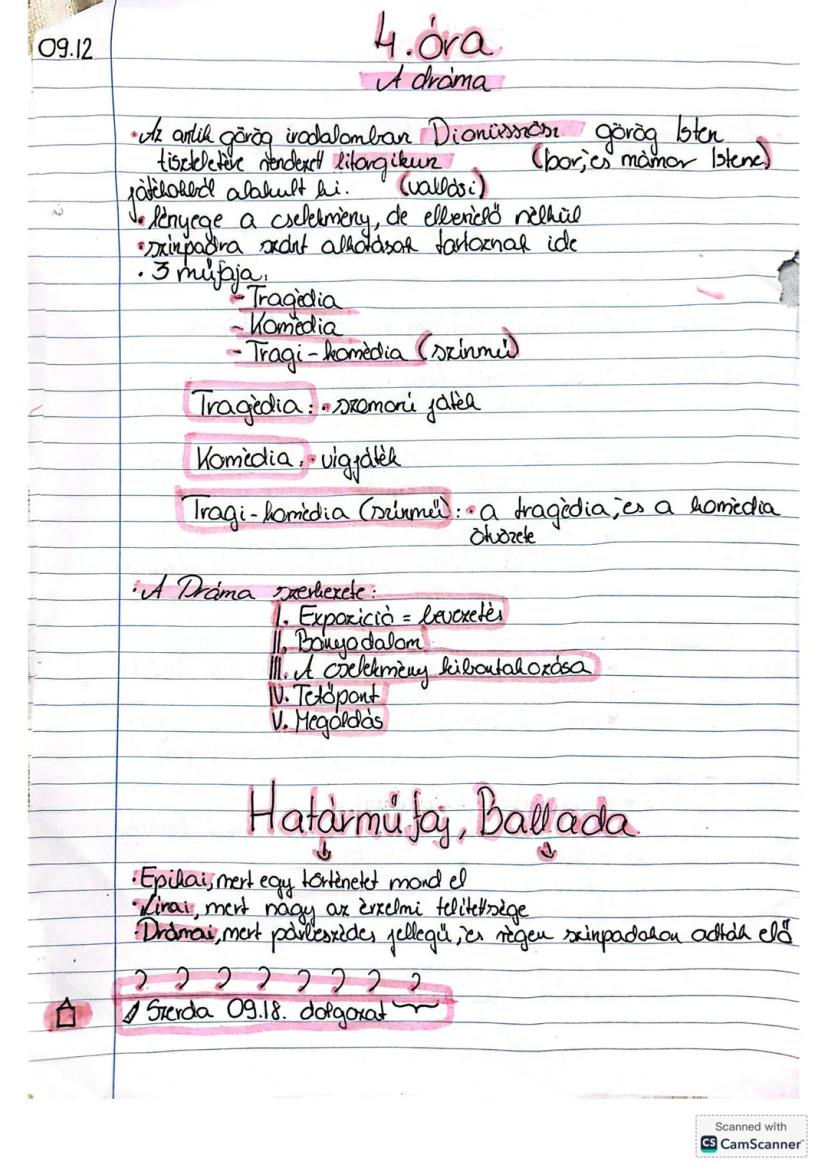 09.12
4. óra
A dráma
• Az antik görög irodalomban Dionüsszosz görög Isten
tiszteletére rendezett litorgikus (bor, és mámor Istene)
játékokból alakult ki. (vallási)
• lényege a cselekmény, de elbeszélő nélkül
• színpadra szánt alkotások tartoznak ide
• 3 műfaja:
- Tragèdia
- Komèdia
- Tragi-komèdia (színmű)
Tragèdia: • szomorú játék
Komèdia: • vígjáték
Tragi-komèdia (színmű): • a tragèdia, és a komèdia
ötvözete
• A Dráma szerkezete:
I. Expozíció = bevezetés
II. Bonyodalom
III. A cselekmény kibontakozása
IV. Tetőpont
V. Megoldás
Határműfaj, Ballada
↓ ↓
• Epikai, mert egy történetet mond el
• Lírai, mert nagy az érzelmi telítettsége
• Drámai, mert párbeszédes jellegű, és régen színpadokon adták elő
Szerda 09.18. dolgozat
Scanned with
CS CamScanner